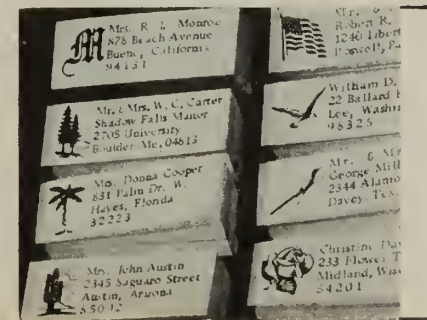 M
Mrs. R. L. Monroe
878 Beach Avenue
Buena, California
94131
Mr. & Mrs. W. C. Carter
Shadow Falls Manor
2705 University
Boulder Me, 04613
Mrs. Donna Cooper
831 Palm Dr., W.
Hayes, Florida
32223
Mrs. John Austin
2345 Saguaro Street
Austin, Arizona
85012
Robert R.
1240 Libert
William D.
22 Ballard
Lee, Washin
98325
Mr. & Mr
George Mill
2344 Alamo
Davey, Tex
Christine Da
233 Flower T
Midland, Wis
54201